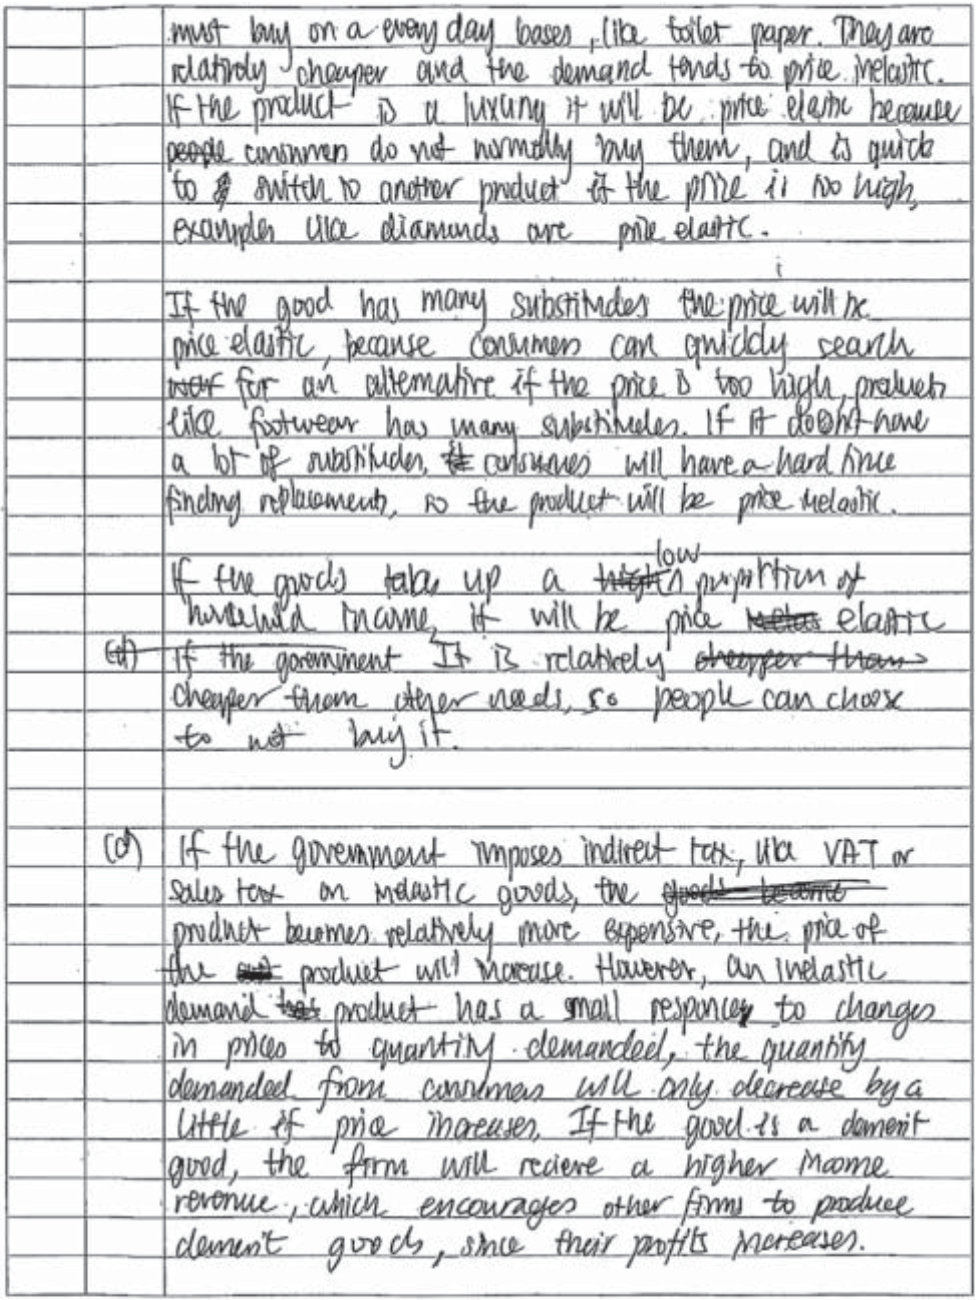 must buy on a every day bases, like toilet paper. They are
relatively cheaper and the demand tends to price inelastic.
If the product is a luxury it will be price elastic because
people consumers do not normally buy them, and is quick
to switch to another product if the price is too high,
examples like diamonds are price elastic.
If the good has many substitudes the price will be
price elastic, because consumers can quickly search
for an alternative if the price is too high, products
like footwear has many substitudes. If it doesn't have
a lot of substitudes, consumes will have a hard time
finding replacements, so the product will be price inelastic.
low
If the goods takes up a high proportion of
household income, it will be price elastic
(d) if the government It is relatively cheaper than
cheaper than other needs, so people can choose
to not buy it.
(d) If the government imposes indirect tax, like VAT or
sales tax on inelastic goods, the goods become
product becomes relatively more expensive, the price of
the product will increase. However, an inelastic
demand product has a small responce to changes
in prices to quantity demanded, the quantity
demanded from consumers will only decrease by a
little if price increases. If the good is a demerit
good, the firm will recieve a higher income
revenue, which encourages other firms to produce
demerit goods, since their profits increases.